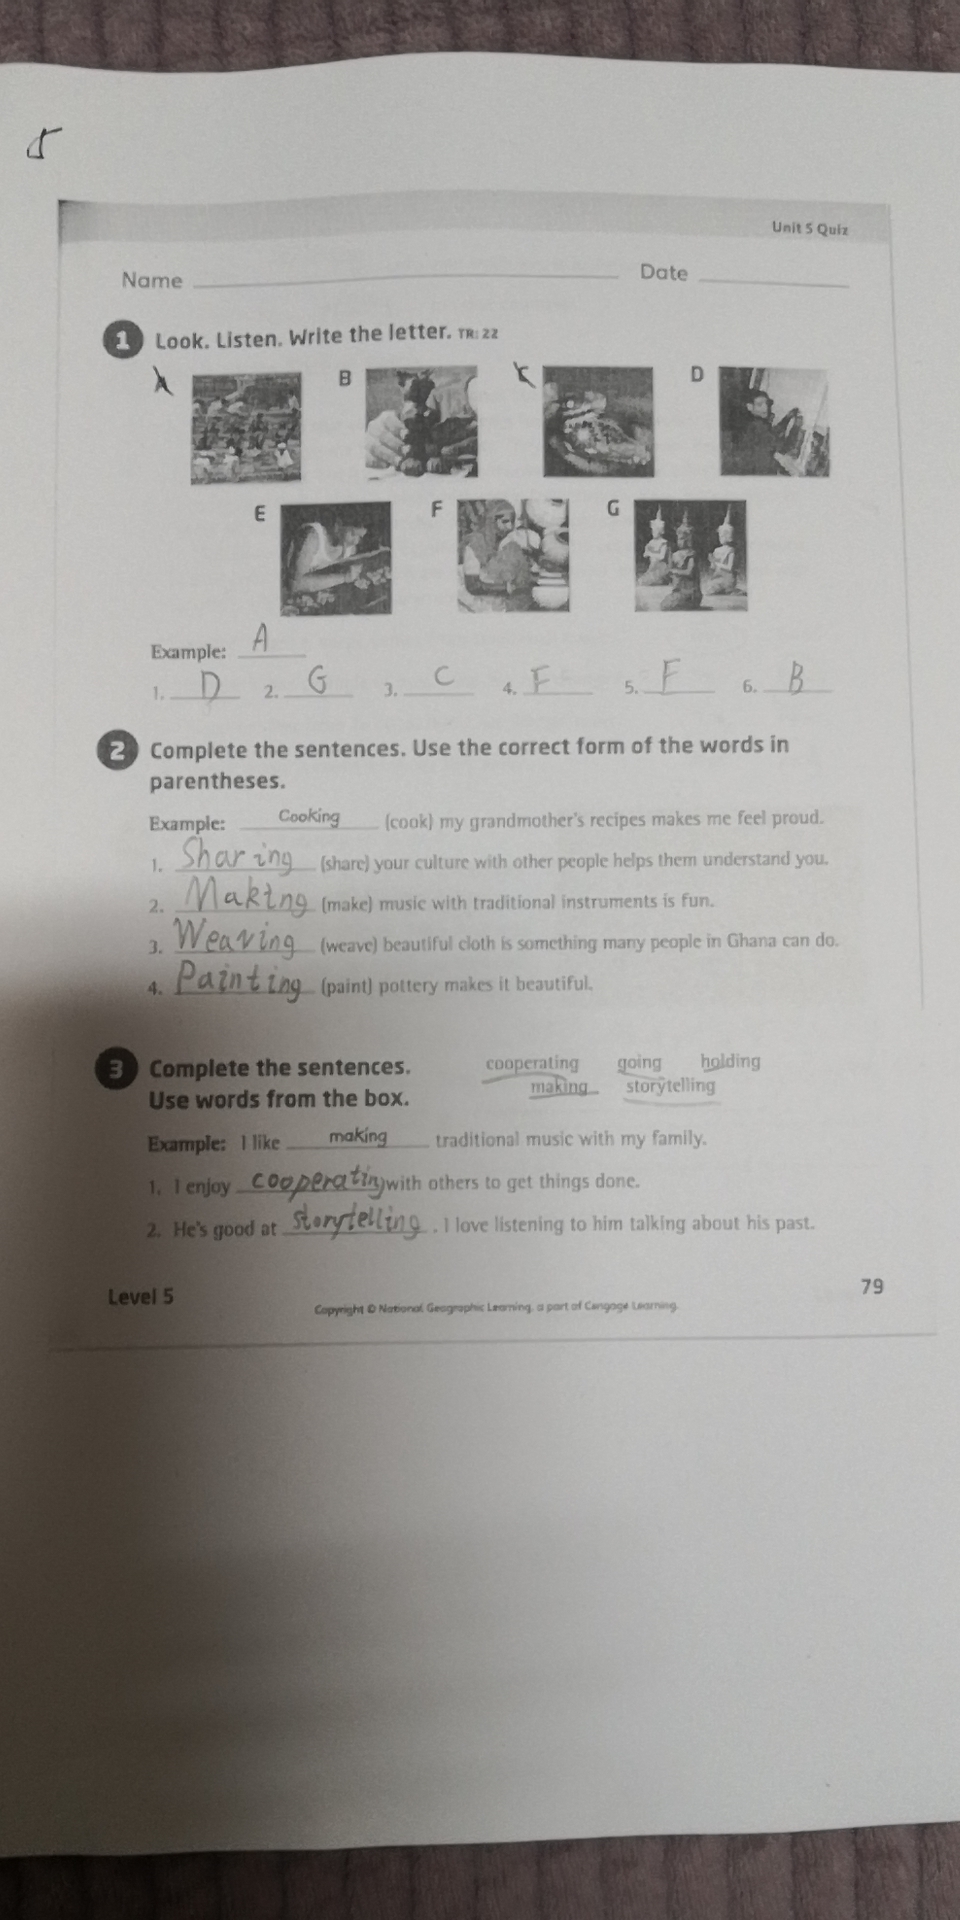 5
Unit 5 Quiz
Name Date
1 Look. Listen. Write the letter. TR: 22
A B C D
E F G
Example: A
1. D 2. G 3. C 4. F 5. F 6. B
2 Complete the sentences. Use the correct form of the words in
parentheses.
Example: Cooking (cook) my grandmother's recipes makes me feel proud.
1. Sharing (share) your culture with other people helps them understand you.
2. Making (make) music with traditional instruments is fun.
3. Weaving (weave) beautiful cloth is something many people in Ghana can do.
4. Painting (paint) pottery makes it beautiful.
3 Complete the sentences. cooperating going holding
Use words from the box. making storytelling
Example: I like making traditional music with my family.
1. I enjoy cooperating with others to get things done.
2. He's good at storytelling. I love listening to him talking about his past.
Level 5 79
Copyright © National Geographic Learning, a part of Cengage Learning.